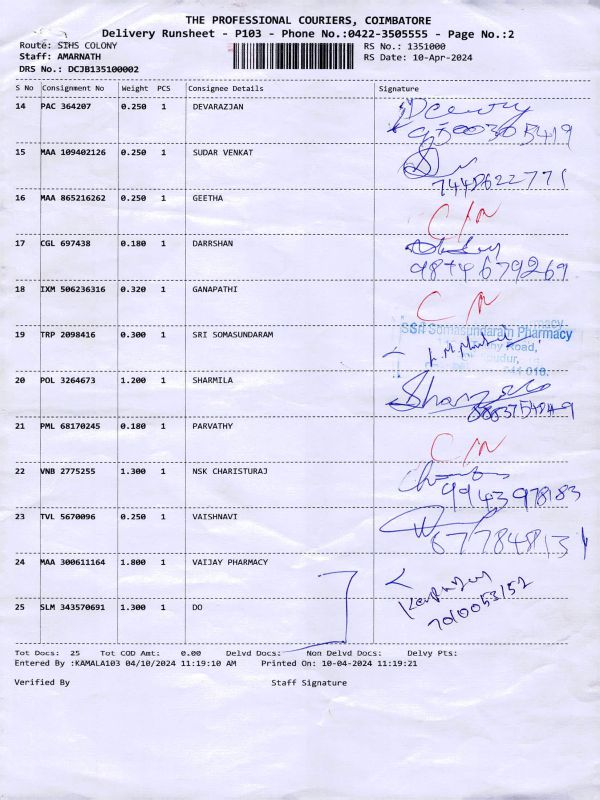 THE PROFESSIONAL COURIERS, COIMBATORE
Delivery Runsheet - P103 - Phone No.:0422-3505555 - Page No.:2
Route: SIHS COLONY RS No.: 1351000
Staff: AMARNATH RS Date: 10-Apr-2024
DRS No.: DCJB135100002
S No Consignment No Weight PCS Consignee Details Signature
14 PAC 364207 0.250 1 DEVARAZJAN
15 MAA 109402126 0.250 1 SUDAR VENKAT
7448622771
16 MAA 865216262 0.250 1 GEETHA C/N
17 CGL 697438 0.180 1 DARRSHAN
9874679269
18 IXM 506236316 0.320 1 GANAPATHI C/N
SSH Somasundaram Pharmacy
19 TRP 2098416 0.300 1 SRI SOMASUNDARAM
Road,
20 POL 3264673 1.200 1 SHARMILA
21 PML 68170245 0.180 1 PARVATHY C/N
22 VNB 2775255 1.300 1 NSK CHARISTURAJ
9943978183
23 TVL 5670096 0.250 1 VAISHNAVI
24 MAA 300611164 1.800 1 VAIJAY PHARMACY
25 SLM 343570691 1.300 1 DO
7010053152
Tot Docs: 25 Tot COD Amt: 0.00 Delvd Docs: Non Delvd Docs: Delvy Pts:
Entered By :KAMALA103 04/10/2024 11:19:10 AM Printed On: 10-04-2024 11:19:21
Verified By Staff Signature